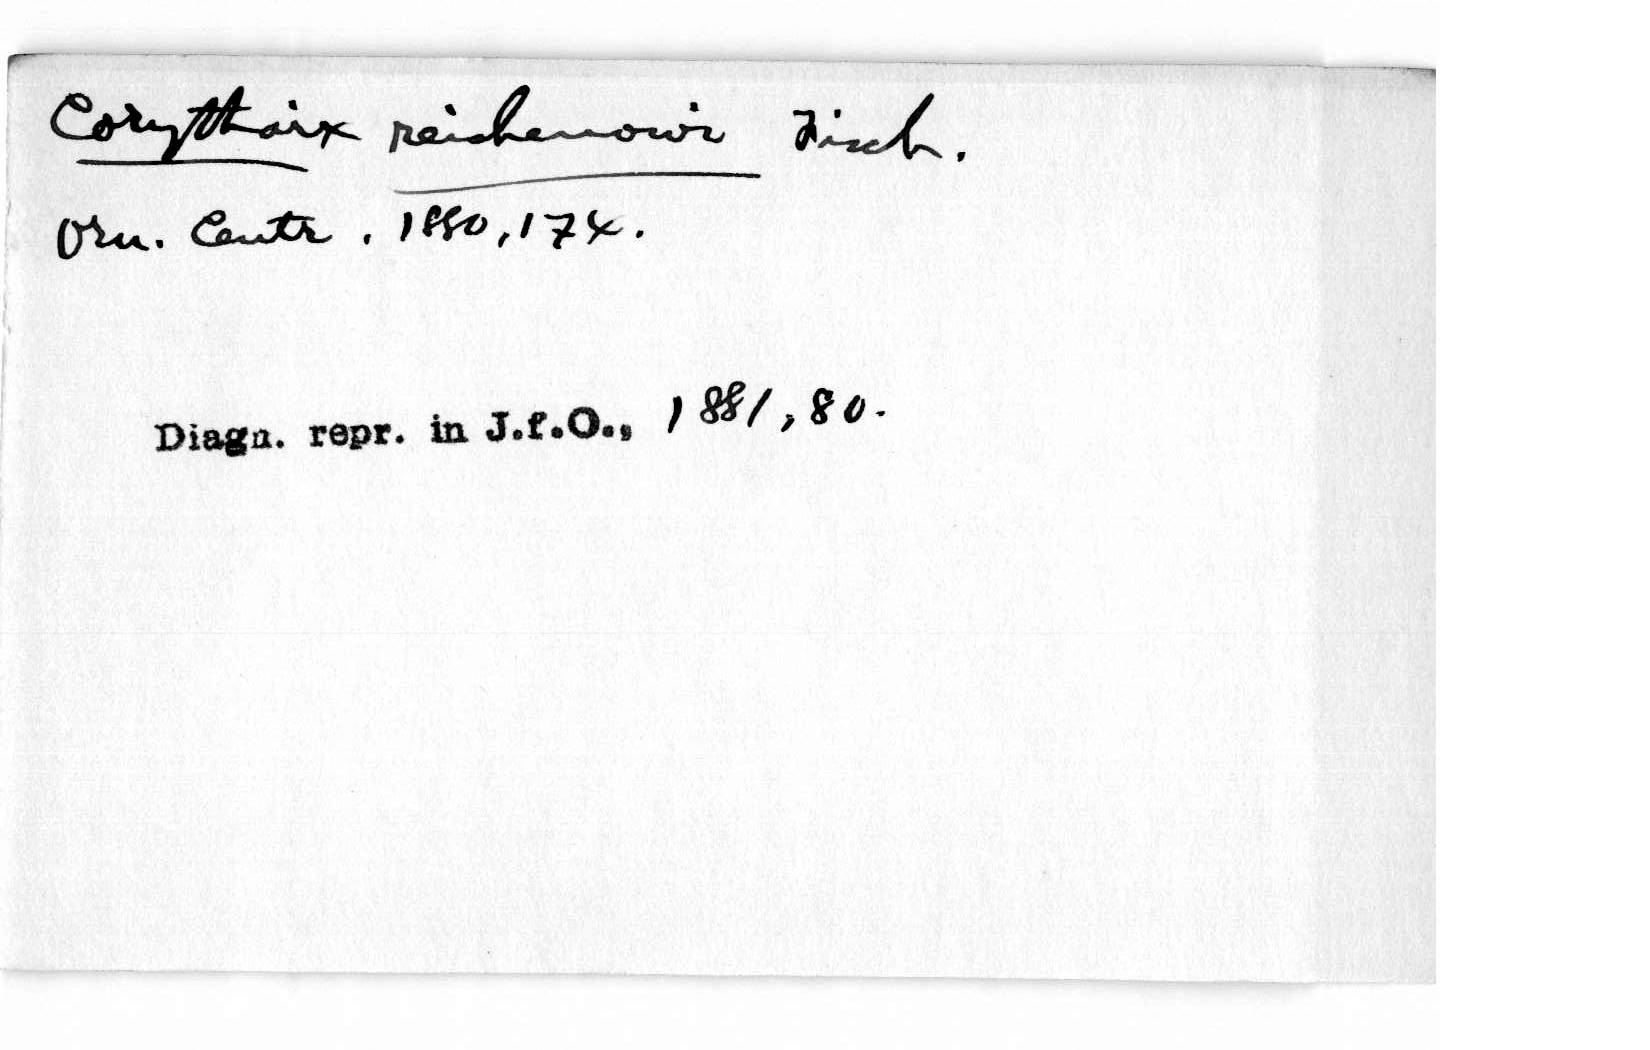 Corythaix reichenowi Fisch.
Orn. Centr. 1880, 174.
Diagn. repr. in J.f.O., 1881, 80.